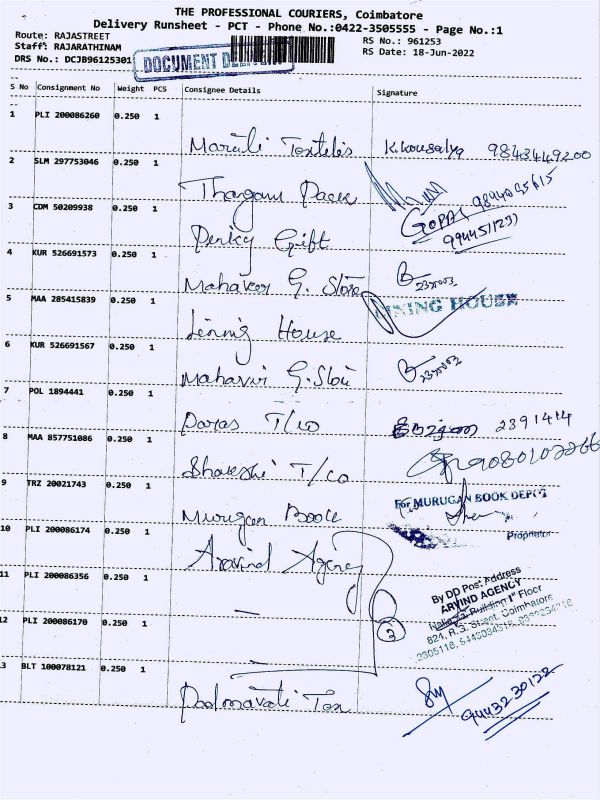 THE PROFESSIONAL COURIERS, Coimbatore
Delivery Runsheet - PCT - Phone No.:0422-3505555 - Page No.:1
Route: RAJASTREET
RS No.: 961253
Staff: RAJARATHINAM
RS Date: 18-Jun-2022
DRS No.: DCJB96125301
DOCUMENT
S No Consignment No Weight PCS Consignee Details Signature
1 PLI 200086260 0.250 1
Textiles K.Kousalya 9843449200
2 SLM 297753046 0.250 1
Thangam Pack
3 CDM 50209938 0.250 1
GOPAL
Gift
4 KUR 526691573 0.250 1
Mahaveer G. Store
5 MAA 285415839 0.250 1
LINING HOUSE
Lining House
6 KUR 526691567 0.250 1
Mahavir G. Stor
7 POL 1894441 0.250 1
Paras T/co 2391414
8 MAA 857751086 0.250 1
T/co
9 TRZ 20021743 0.250 1
For MURUGAN BOOK DEPOT
Murugan Book
Proprietor
10 PLI 200086174 0.250 1
Aravind Agency
11 PLI 200086356 0.250 1
By DD Post Address
ARVIND AGENCY
Building 1st Floor
824, R.G. Street, Coimbatore
12 PLI 200086170 0.250 1
3
13 BLT 100078121 0.250 1
Padmavati Tex 9443230122